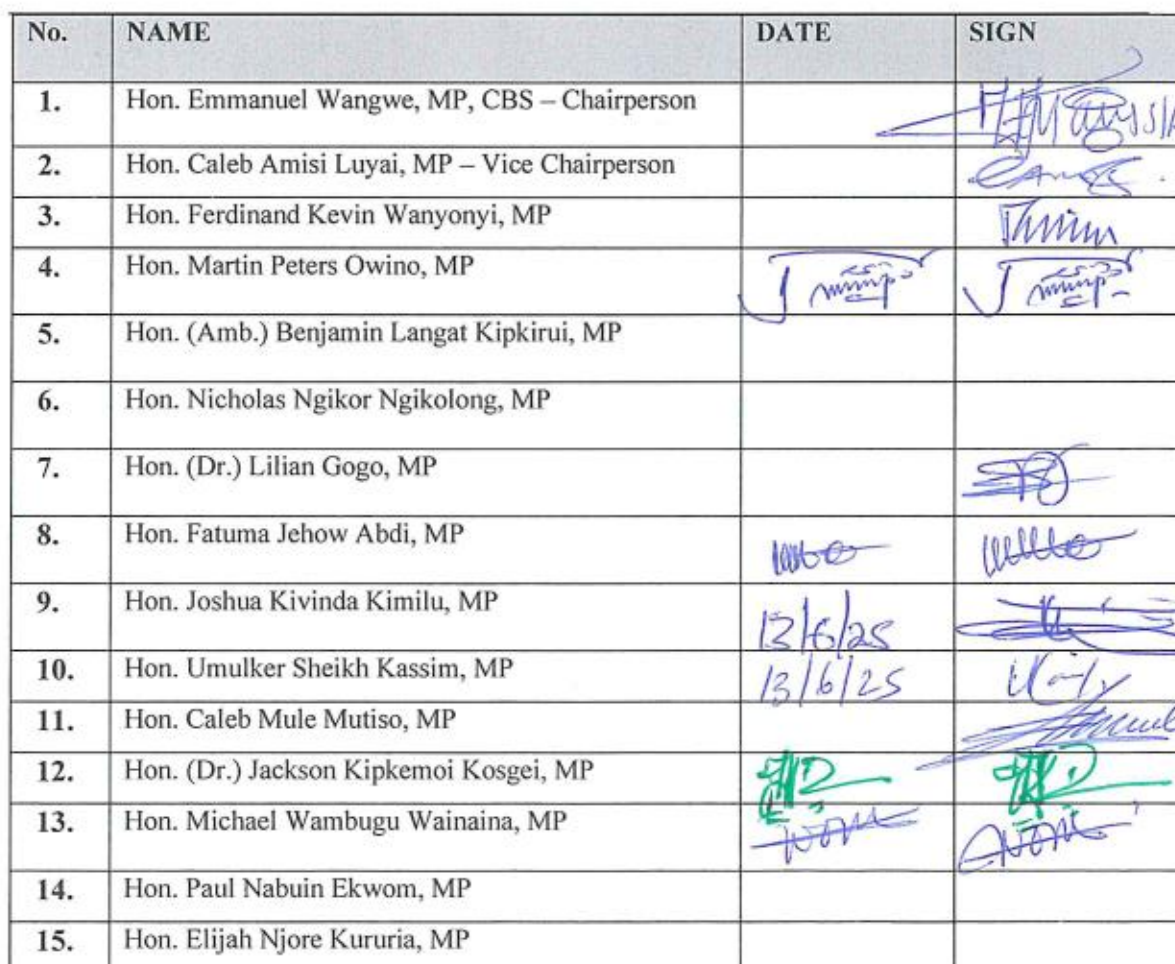 No. NAME DATE SIGN
1. Hon. Emmanuel Wangwe, MP, CBS – Chairperson
2. Hon. Caleb Amisi Luyai, MP – Vice Chairperson
3. Hon. Ferdinand Kevin Wanyonyi, MP
4. Hon. Martin Peters Owino, MP
5. Hon. (Amb.) Benjamin Langat Kipkirui, MP
6. Hon. Nicholas Ngikor Ngikolong, MP
7. Hon. (Dr.) Lilian Gogo, MP
8. Hon. Fatuma Jehow Abdi, MP
9. Hon. Joshua Kivinda Kimilu, MP 13/6/25
10. Hon. Umulker Sheikh Kassim, MP 13/6/25
11. Hon. Caleb Mule Mutiso, MP
12. Hon. (Dr.) Jackson Kipkemoi Kosgei, MP
13. Hon. Michael Wambugu Wainaina, MP
14. Hon. Paul Nabuin Ekwom, MP
15. Hon. Elijah Njore Kururia, MP